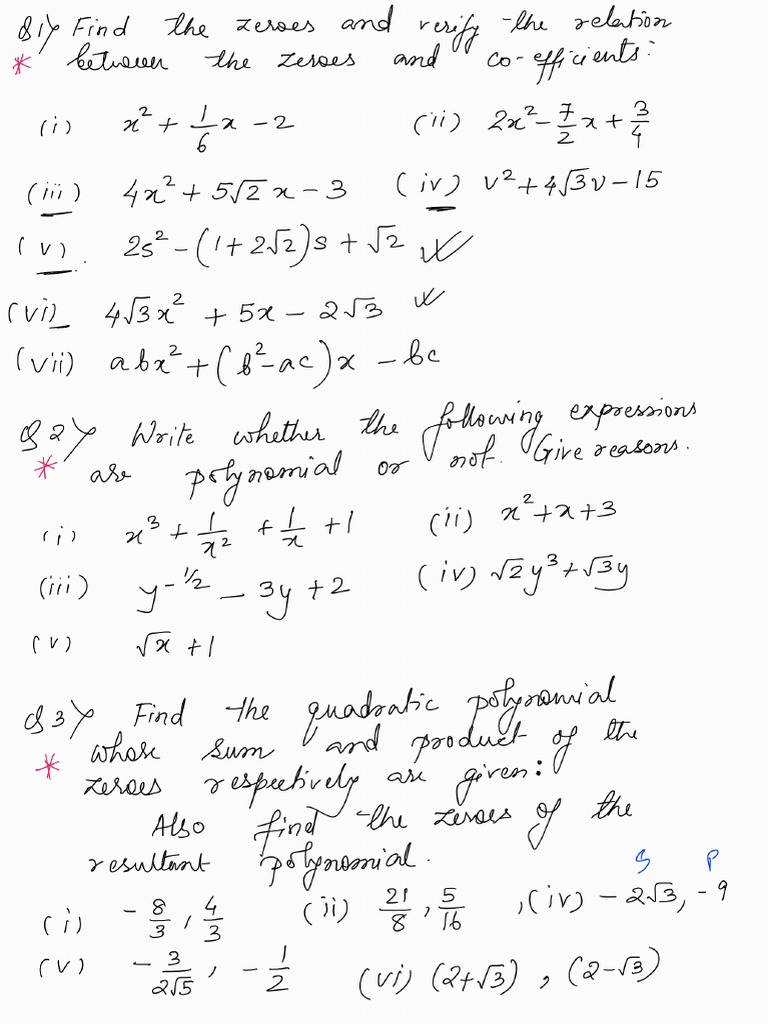 Q1) Find the zeroes and verify the relation
* between the zeroes and co-efficients:
(i) x² + 1/6 x - 2 (ii) 2x² - 7/2 x + 3/4
(iii) 4x² + 5√2 x - 3 (iv) v² + 4√3v - 15
(v). 2s² - (1+2√2)s + √2
(vi) 4√3x² + 5x - 2√3
(vii) abx² + (b²-ac)x - bc
Q2) Write whether the following expressions
* are polynomial or not. Give reasons.
(i) x³ + 1/x² + 1/x + 1 (ii) x² + x + 3
(iii) y^-1/2 - 3y + 2 (iv) √2y³ + √3y
(v) √x + 1
Q3) Find the quadratic polynomial
* whose sum and product of the
zeroes respectively are given:
Also find the zeroes of the
resultant polynomial.
S P
(i) -8/3, 4/3 (ii) 21/8, 5/16 ,(iv) -2√3, -9
(v) -3/2√5, -1/2 (vi) (2+√3), (2-√3)